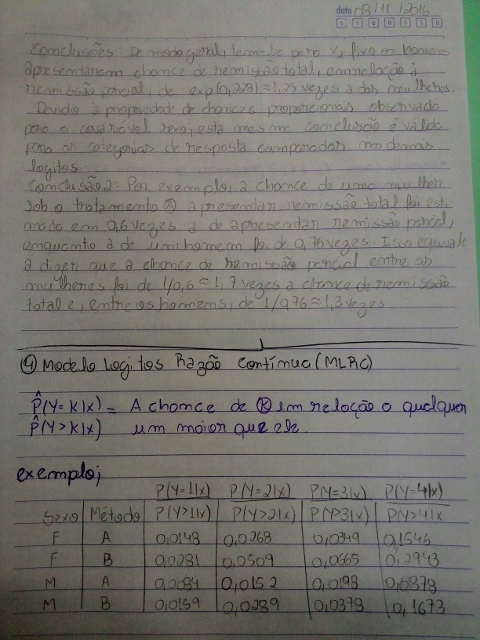 data 03/11/2016
Conclusões: De modo geral, tem-se para X₂ fixo os homens
apresentaram chance de remissão total, em relação à
remissão parcial, de exp(0,228) ≈ 1,25 vezes a das mulheres.
Devido a propriedade de chances proporcionais observada
para a covariável sexo, esta mesma conclusão é válida
para as categorias de resposta comparadas nos demais
logitos.
Conclusão 2: Por exemplo, a chance de uma mulher
sob o tratamento Ⓐ apresentar remissão total foi esti
mada em 0,6 vezes a de apresentar remissão parcial,
enquanto a de um homem foi de 0,76 vezes. Isso equivale
a dizer que a chance de remissão parcial entre as
mulheres foi de 1/0,6 ≈ 1,7 vezes a chance de remissão
total e, entre os homens, de 1/0,76 ≈ 1,3 vezes
④ Modelo Logitos Razão Contínua (MLRC)
P̂(Y=K|x) = A chance de Ⓚ em relação a qualquer
P̂(Y>K|x) um maior que ele.
exemplo;
P(Y=1|x) P(Y=2|x) P(Y=3|x) P(Y=4|x)
Sexo Método P(Y>1|x) P(Y>2|x) P(Y>3|x) P(Y>4|x
F A 0,0148 0,0268 0,0349 0,1546
F B 0,0281 0,0509 0,0665 0,2943
M A 0,0084 0,0152 0,0198 0,0878
M B 0,0159 0,0289 0,0378 0,1673